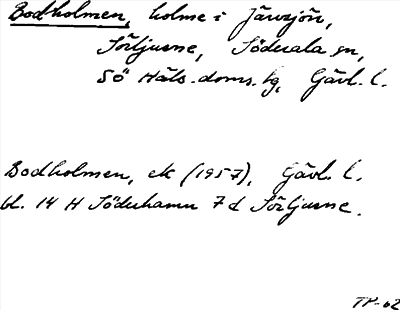 Bodholmen, holme i Järvsjön,
Sörljusne, Söderala sn,
SÖ Häls. doms. hg, Gävl. l.
Bodholmen, ek (1957), Gävl. l.
bl. 14 H Söderhamn 7 d Sörljusne.
TP-62